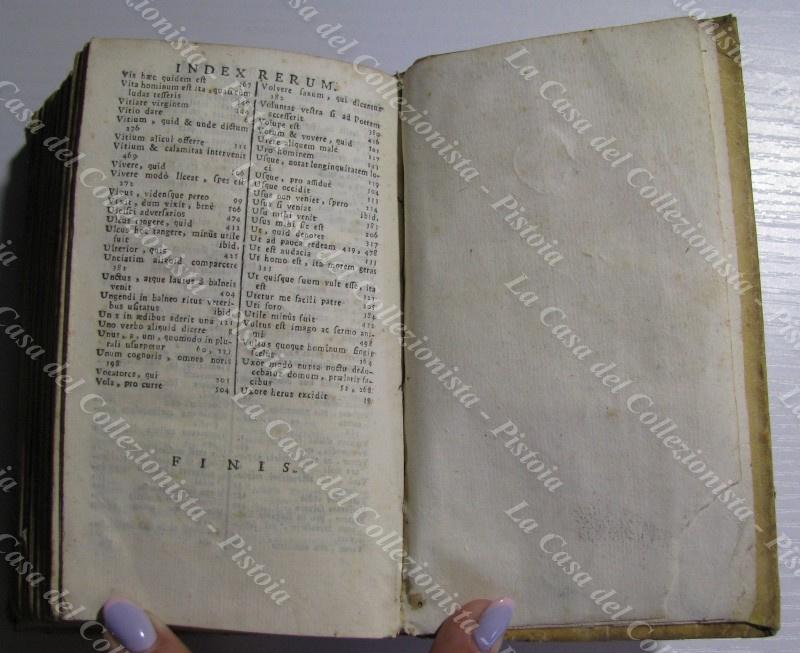 INDEX RERUM.
Vis hæc quidem est 367
Vita hominum est ita, quasi cum
ludas tesseris
Vitiare virginem
Vitio dare
Vitium, quid & unde dictum
276
Vitium alicui offerre 111
Vitium & calamitas intervenit
469
Vivere, quid
Vivere modò licear, spes est
272
Vivus, vidensque pereo 99
Vixit, dum vixit, benè 206
Ulcisci adversarios 474
Ulcus tangere, quid 412
Ulcus hoc tangere, minùs utile
fuit ibid.
Ulterior, quis 425
Unciatim aliquid comparcere
381
Unctus, atque lautus à balneis
venit 404
Ungendi in balneo ritus veteri-
bus usitatus ibid.
Un s in ædibus aderit una 121
Uno verbo aliquid dicere
Unus, a, um, quomodo in plu-
rali usurpetur 60, 121
Unum cognoris, omneo noris
198
Vocatores, qui 201
Vola, pro curre 504
Volvere saxum, qui dicentur
182
Voluntas vestra si ad Poetam
accesserit 389
Volupe est 416
Votum & vovere, quid 101
Urere aliquem malè 117
Uro hominem 141
Usque, notat longinquitatem lo-
ci
Usque, pro assiduè 119
Usque occidit 104
Usus non veniet, spero 113
Usus si veniat 214
Usu mihi venit ibid.
Usus mihi sic est 383
Ut, quid denotet 206
Ut ad pauca redeam 317
429, 478
Ut est audacia 111
Ut homo est, ita morem geras
323
Ut quisque suum vult esse, ita
est 127
Utetur me facili patre 105
Uti foro 204
Utile minùs fuit 412
Vultus est imago ac sermo ani-
mi 498
Vultus quoque hominum fingit
scelus 164
Uxor modò nupta noctu dedu-
cebatur domum, prælatis fa-
cibus 52, 268
Uxore herus excidit 19
FINIS.
La Casa del Collezionista - Pistoia